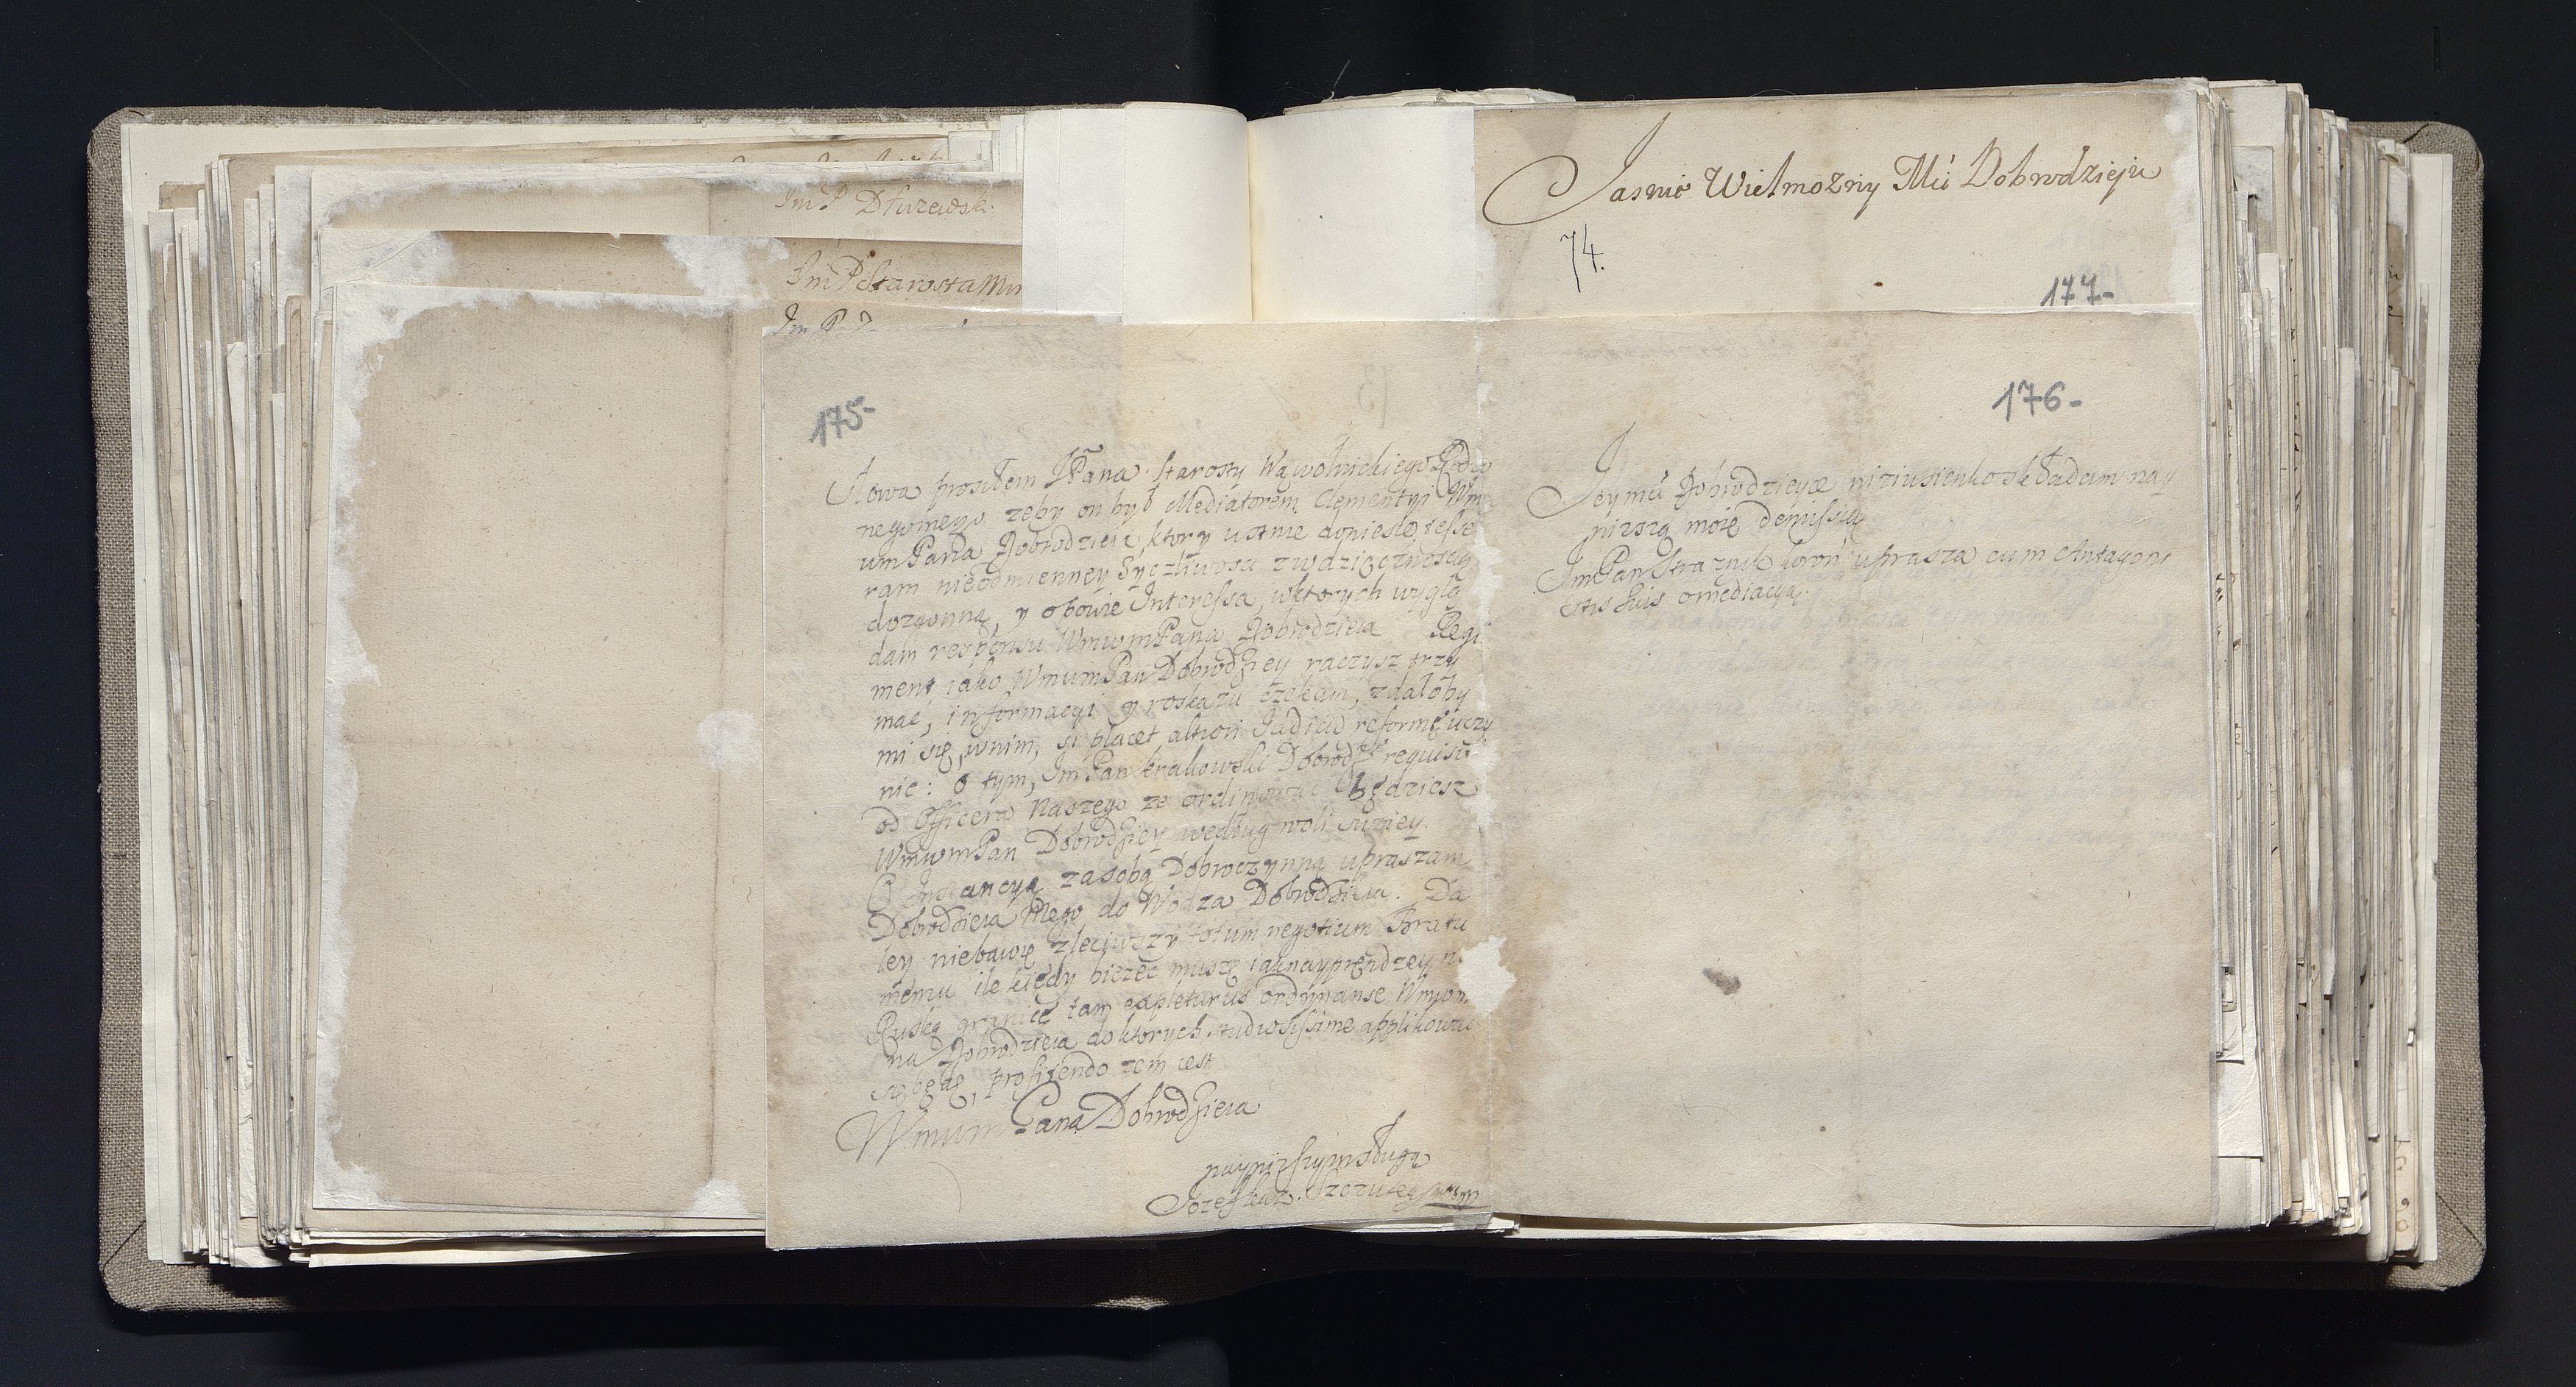 Im P Dłuzewsk.
Im P Starosta Mu
Im P
Jasnie Wielmozny Mći Dobrodzieju
74.
177-
175-
176-
słowa prosiłem JPana Starosty Wąwolnickiego Rodzo
negomego zeby on był Mediatorem Clementyi Wm
um Pana Dobrodzieia, ktory ustnie doniesie, tesse
ram nieodmienney Syczliwosci z wdzięcznoscią
dozgonną, y obowie Interessa, wktorych wyglą
dam responsu WmumPana Dobrodzieia Regi
ment iako WmumPan Dobrodziey raczysz trzy
mac, informacyi y roskazu czekam, zdałoby
mi się wnim, si placet altiori Iudicio reformę uczy
nic: o tym, ImPan krakowski Dobrodziey requisit
od Officera Naszego ze ordinowac będziesz
WmumPan Dobrodziey według woli swoiey.
O Instancyą zasobą Dobroczynną upraszam
Dobrodzieia Mego do Wodza Dobrodzieia. Da
ley niebawię zleciwszy totum negotium Bratu
memu ile kiedy biezec muszę iaknayprendzey n
Ruską granicę tam expleturus ordynanse Wmum
na Dobrodzieia do ktorych studiosissime applikowac
się będę, profitendo zem iest
Wmum Pana Dobrodzieia
naynizszym sługą
Jozef Kaz. Szczuka
Jey mći Dobrodzieyce niziusienko składam nay
nizszą moię demissią
ImPan Straznik koron uprasza cum Antagoni
stis suis omediacyą.